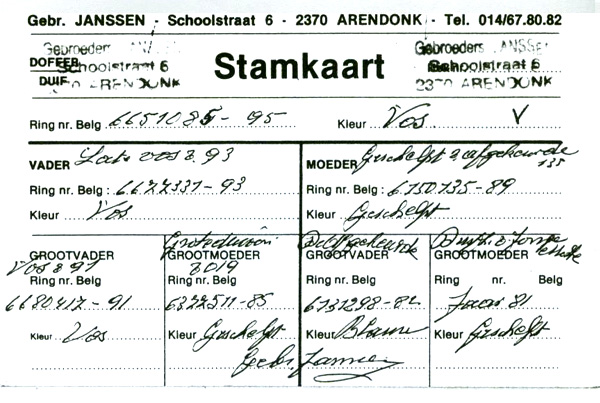 Gebr. JANSSEN - Schoolstraat 6 - 2370 ARENDONK - Tel. 014/67.80.82
Gebroeders JANSSEN Gebroeders JANSSEN
DOFFER Schoolstraat 6 Stamkaart Schoolstraat 6
DUIF 2370 ARENDONK 2370 ARENDONK
Ring nr. Belg 6651085-95 Kleur Vos V
VADER Late vos 2.93 MOEDER Geschelpt z afgekeurde 135
Ring nr. Belg : 6622331-93 Ring nr. Belg : 6150135-89
Kleur Vos Kleur Geschelpt
GROOTVADER GROOTMOEDER GROOTVADER GROOTMOEDER
Vos 2 91 2019 De Afgekeurde
Ring nr. Belg Ring nr. Belg Ring nr. Belg Ring nr. Belg
6680417-91 6322511-85 6731298-82 Jaar 81
Kleur Vos Kleur Geschelpt Kleur Blauw Kleur Geschelpt
Gebr. Janssen